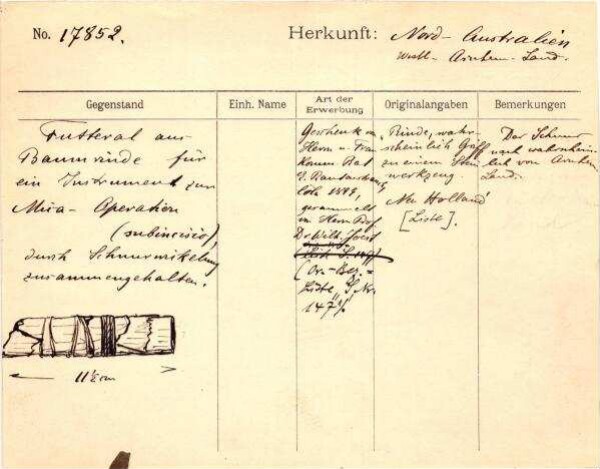 No. 17852.
Herkunft: Nord-Australien
westl. Arnhem-Land.
Gegenstand
Einh. Name
Art der
Erwerbung
Originalangaben
Bemerkungen
Futteral aus
Baumrinde für
ein Instrument zur
Mica-Operation
(subincisio),
durch Schnurwickelung
zusammengehalten.
11½ cm
Geschenk v.
Herrn u. Frau
J. Rautenstrauch
1899,
gesammelt
v. Herrn Prof.
Dr. Wilh. Joest
Liste, S. Nr.
147
Rinde, wahr-
scheinlich Griff
zu einem Stein
werkzeug.
Neu Holland
[Liste].
Der Schnur
nach wahrschein-
lich von Arnhem
Land.